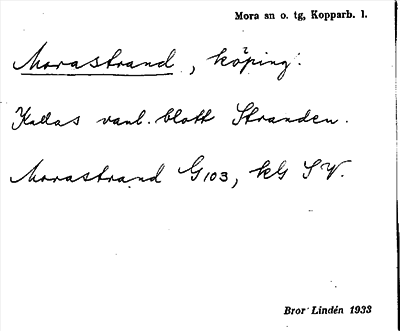 Mora sn o. tg, Kopparb. l.
Morastrand, köping.
Kallas vanl. blott Stranden.
Morastrand G103, kG S V.
Bror Lindén 1933